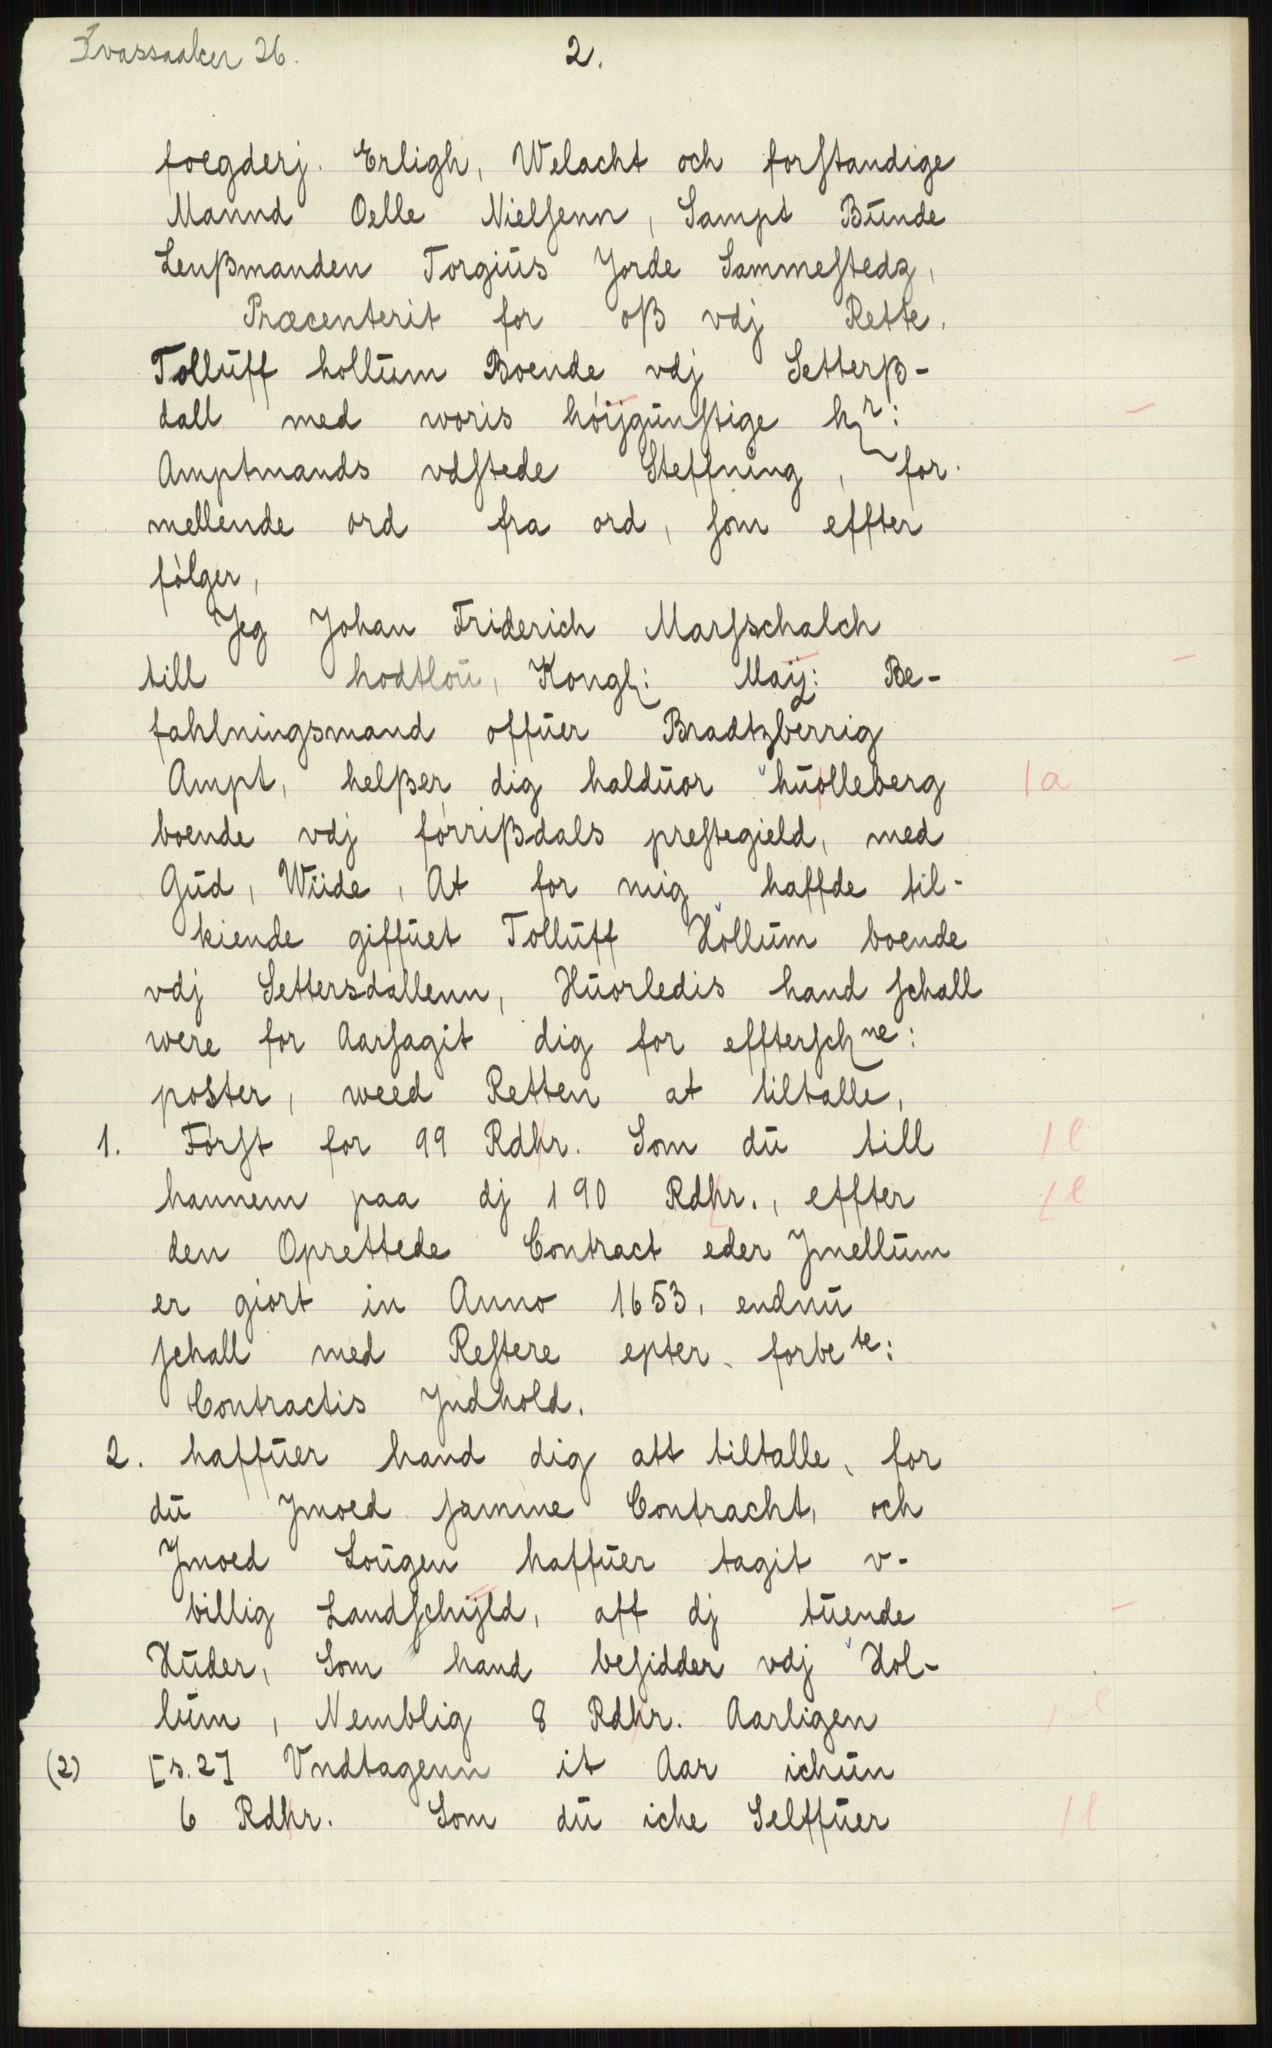 Kvassaaker 26.
2.
foegderj. Erligh, Welacht och forstandige
Mannd Oelle Nielsenn, Sampt Bunde
Lenßmanden Torgius Jorde Sammestedz,
Præcenterit for oß vdj Rette,
Tolluff hollum Boende vdj Setterß-
dall med woris höijgunstige hr:
Amptmands vdstede Steffning, for-
mellende ord fra ord, som effter
fölger,
Jeg Johan Friderich Marsschalch
till hodtlou, Kongl: Maij: Be-
fahlningsmand offuer Bradtzberrig
Ampt, helßer dig halduor huolleberg
boende vdj förrißdals prestegield, med
Gud, Wiide, At for mig haffde til-
kiende giffuet Tolluff Hollum boende
vdj Settersdallenn, Huorledis hand schall
were for Aarsagit dig for effterschne:
poster, weed Retten at tiltalle,
1. Först for 99 Rdhr. Som du till
hannem paa dj 190 Rdhr., effter
den Oprettede Contract eder Jmellum
er giort in Anno 1653, endnu
schall med Restere epter forbete:
Contractis Jndhold.
2. haffuer hand dig att tiltalle, for
du Jmoed samme Contracht, och
Jmoed Lougen haffuer tagit v-
billig Landschijld, aff dj tuende
Huder, Som hand besidder vdj Hol-
lum, Nemblig 8 Rdhr. Aarligen
(2) [s. 2] Vndtagenn it Aar ichun
6 Rdhr. Som du iche Selffuer